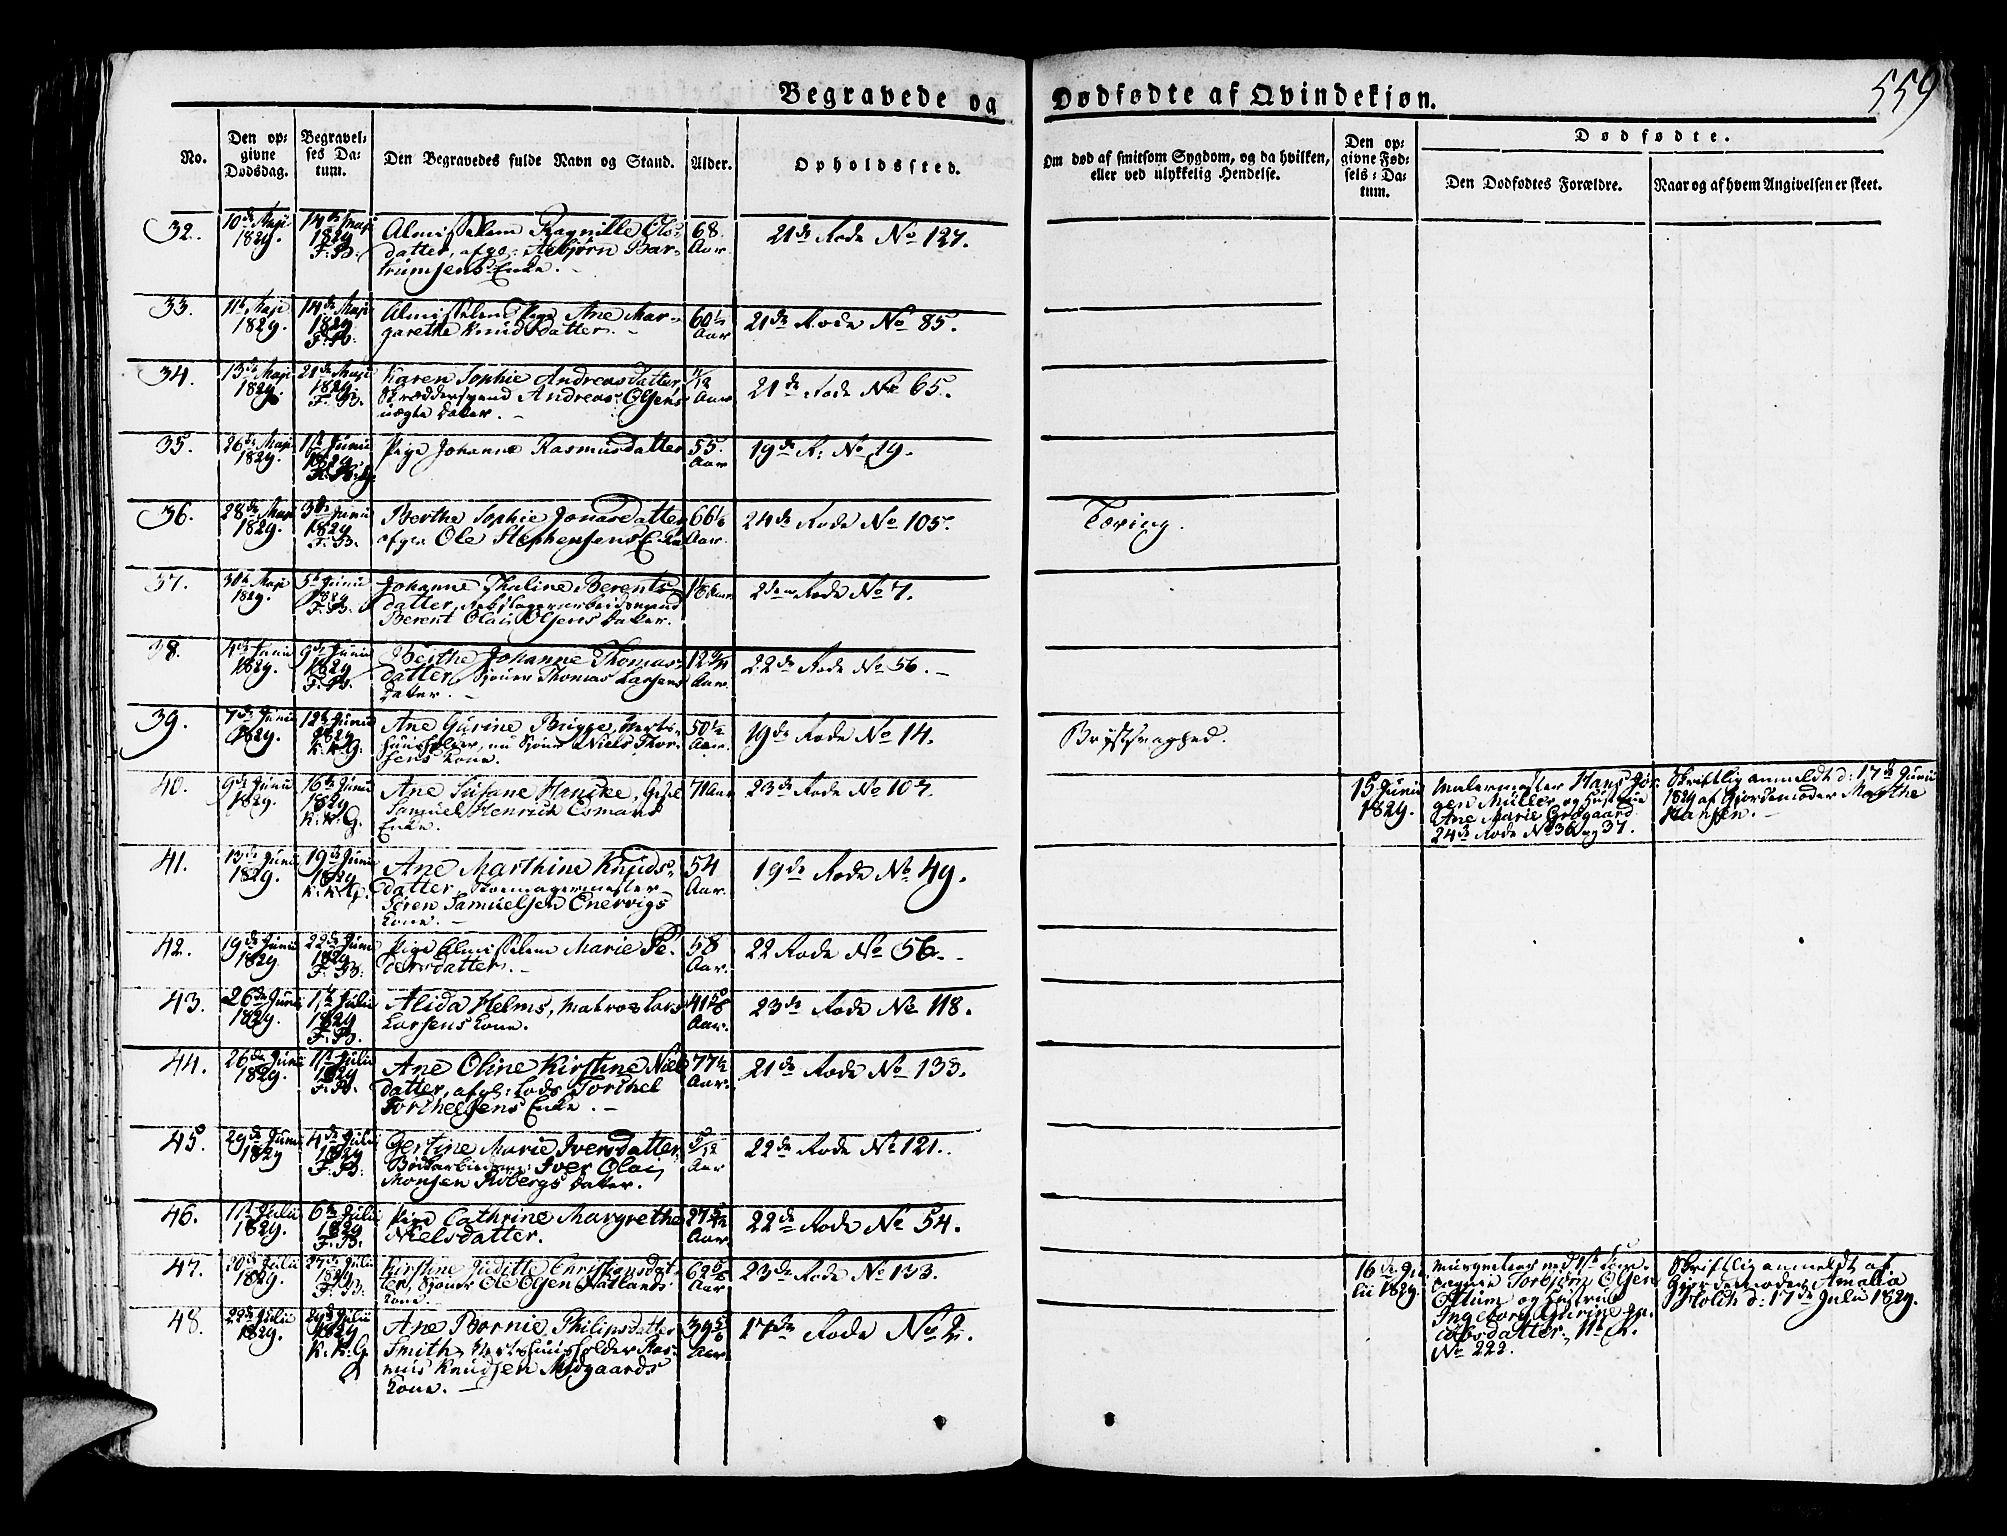 559
Begravede og Dødfødte af Qvindekjøn.
No.
Den opgivne Dødsdag.
Begravelses Datum.
Den Begravedes fulde Navn og Stand.
Alder.
Opholdssted.
Om død af smitsom Sygdom, og da hvilken, eller ved ulykkelig Hendelse.
Den opgivne Fødsels-Datum.
Dødfødte.
Den Dødfødtes Forældre.
Naar og af hvem Angivelsen er skeet.
32. 10de Maji 1829. 14de Maji 1829 F. B. Almisselem Ragnille Ols-
datter, afg: Asbjørn Bar-
trumsens Enke. 68. Aar 21de Rode No 127.
33. 11te Maji 1829. 14de Maji 1829 F. B. Almisselem Pige Ane Mar-
garethe Knudsdatter. 60½ Aar 21de Rode No 85.
34. 13de Maji 1829. 21de Maji 1829. F. B. Karen Sophie Andreasdatter,
Skræddersvend Andreas Olsens
uægte Datter. Aar 21de Rode No 65.
35. 26de Maji 1829. 1te Junii 1829. Pige Johanne Rasmusdatter 55. Aar 19de R: No 19.
36. 28de Maji 1829. 3de Junii 1829 F. B. Berthe Sophie Jonasdatter
afg: Ole Stephensens Enke 66½ Aar. 24de Rode No 105.
Tæring.
37. 30te Maji 1829. 5te Junii 1829 F. B. Johanne Thaline Berents-
datter, Rebslagerarbeidsmand
Berent Olai Olsens Datter. Aar. 2den Rode No 7.
38. 4de Junii 1829. 9de Junii 1829 F. B. Berthe Johanne Thomas-
datter, Sjouer Thomas Larsens
Datter. 12 Aar. 22de Rode No 56.
39. 7de Junii 1829. 12te Junii 1829 K. K. G. Ane Gurine Brigge, Verts-
huusholder, nu Sjouer Niels Thor-
sens Kone. 50½ Aar. 19de Rode No 14.
Brystsvaghed.
40. 9de Junii 1829. 16de Junii 1829 K. K. G. Ane Susane Hencke,
Samuel Henrich Esmans
Enke. 71 Aar 23de Rode No 107.
15 Junii 1829. Malermester Hans Jør-
gen Müller og Hustrue
Ane Marie Grøgaard
24de Rode No 36 og 37.
Skriftlig anmeldt d: 17de Junii
1829 af Gjordemoder Marthe
Hansen.
41. 13de Junii 1829. 19de Junii 1829 K. K. G. Ane Marthine Knuds-
datter, Skoemagermester
Søren Samuelsen Enervigs
Kone. 54 Aar. 19de Rode No 49.
42. 19de Junii 1829 22de Junii 1829 F. B. Pige Almisselem Marie Pe-
dersdatter. 58 Aar. 22 Rode No 56.
43. 26de Junii 1829. 1te Julii 1829 F. B. Alida Helms, Matros Lars
Larsens Kone. Aar. 23de Rode No 118.
44. 26de Junii 1829. 1te Julii 1829 F. B. Ane Oline Kirstine Niels
datter, afg: Lods Torchel
Torchelsens Enke. 77½ Aar. 21de Rode No 133.
45. 29de Junii 1829 4de Julii 1829 F. B. Gertine Marie Iversdatter,
Iver Olai
Monsen Robergs Datter. 5/12 Aar 22de Rode No 121.
46. 1te Julii 1829. 6te Julii 1829 F. B. Pige Cathrine Margrethe
Nielsdatter. 27 Aar. 22de Rode No 54.
47. 20de Julii 1829. 27de Julii 1829. F. B. Kirstine Juditte Christiansdat-
ter, Sjouer Ole Olsen Hatlands
Kone. 62 Aar 23de Rode No 133.
16de Ju-
lii 1829. Torbjørn Olsen
og Hustrue
Ingeborg Gurine Ja-
cobsdatter, 11te R.
No 222.
Skriftlig anmeldt af
Gjordemoder Amalia
Holch d: 17de Julii 1829.
48. 22de Julii 1829. 29de Julii 1829 K. K. G. Ane Bornie Philipsdatter
Smith, Vertshuusholder Ras-
mus Knudsen Midgaards
Kone. 39 Aar. 17de Rode No 2.